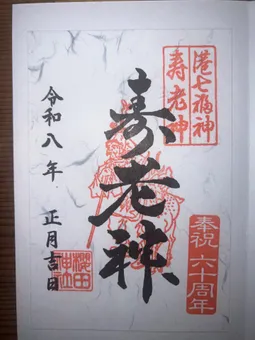 港七福神
寿老神
奉祝 六十周年
寿老神
令和八年 正月吉日
櫻田
神社